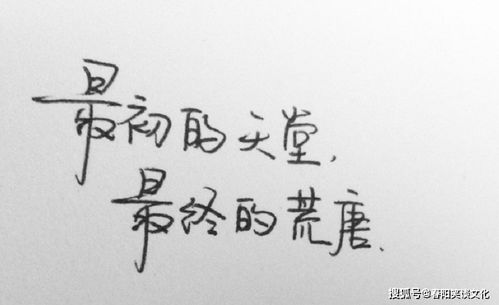 最初的天堂,
最终的荒唐.
搜狐号@春阳笑谈文化